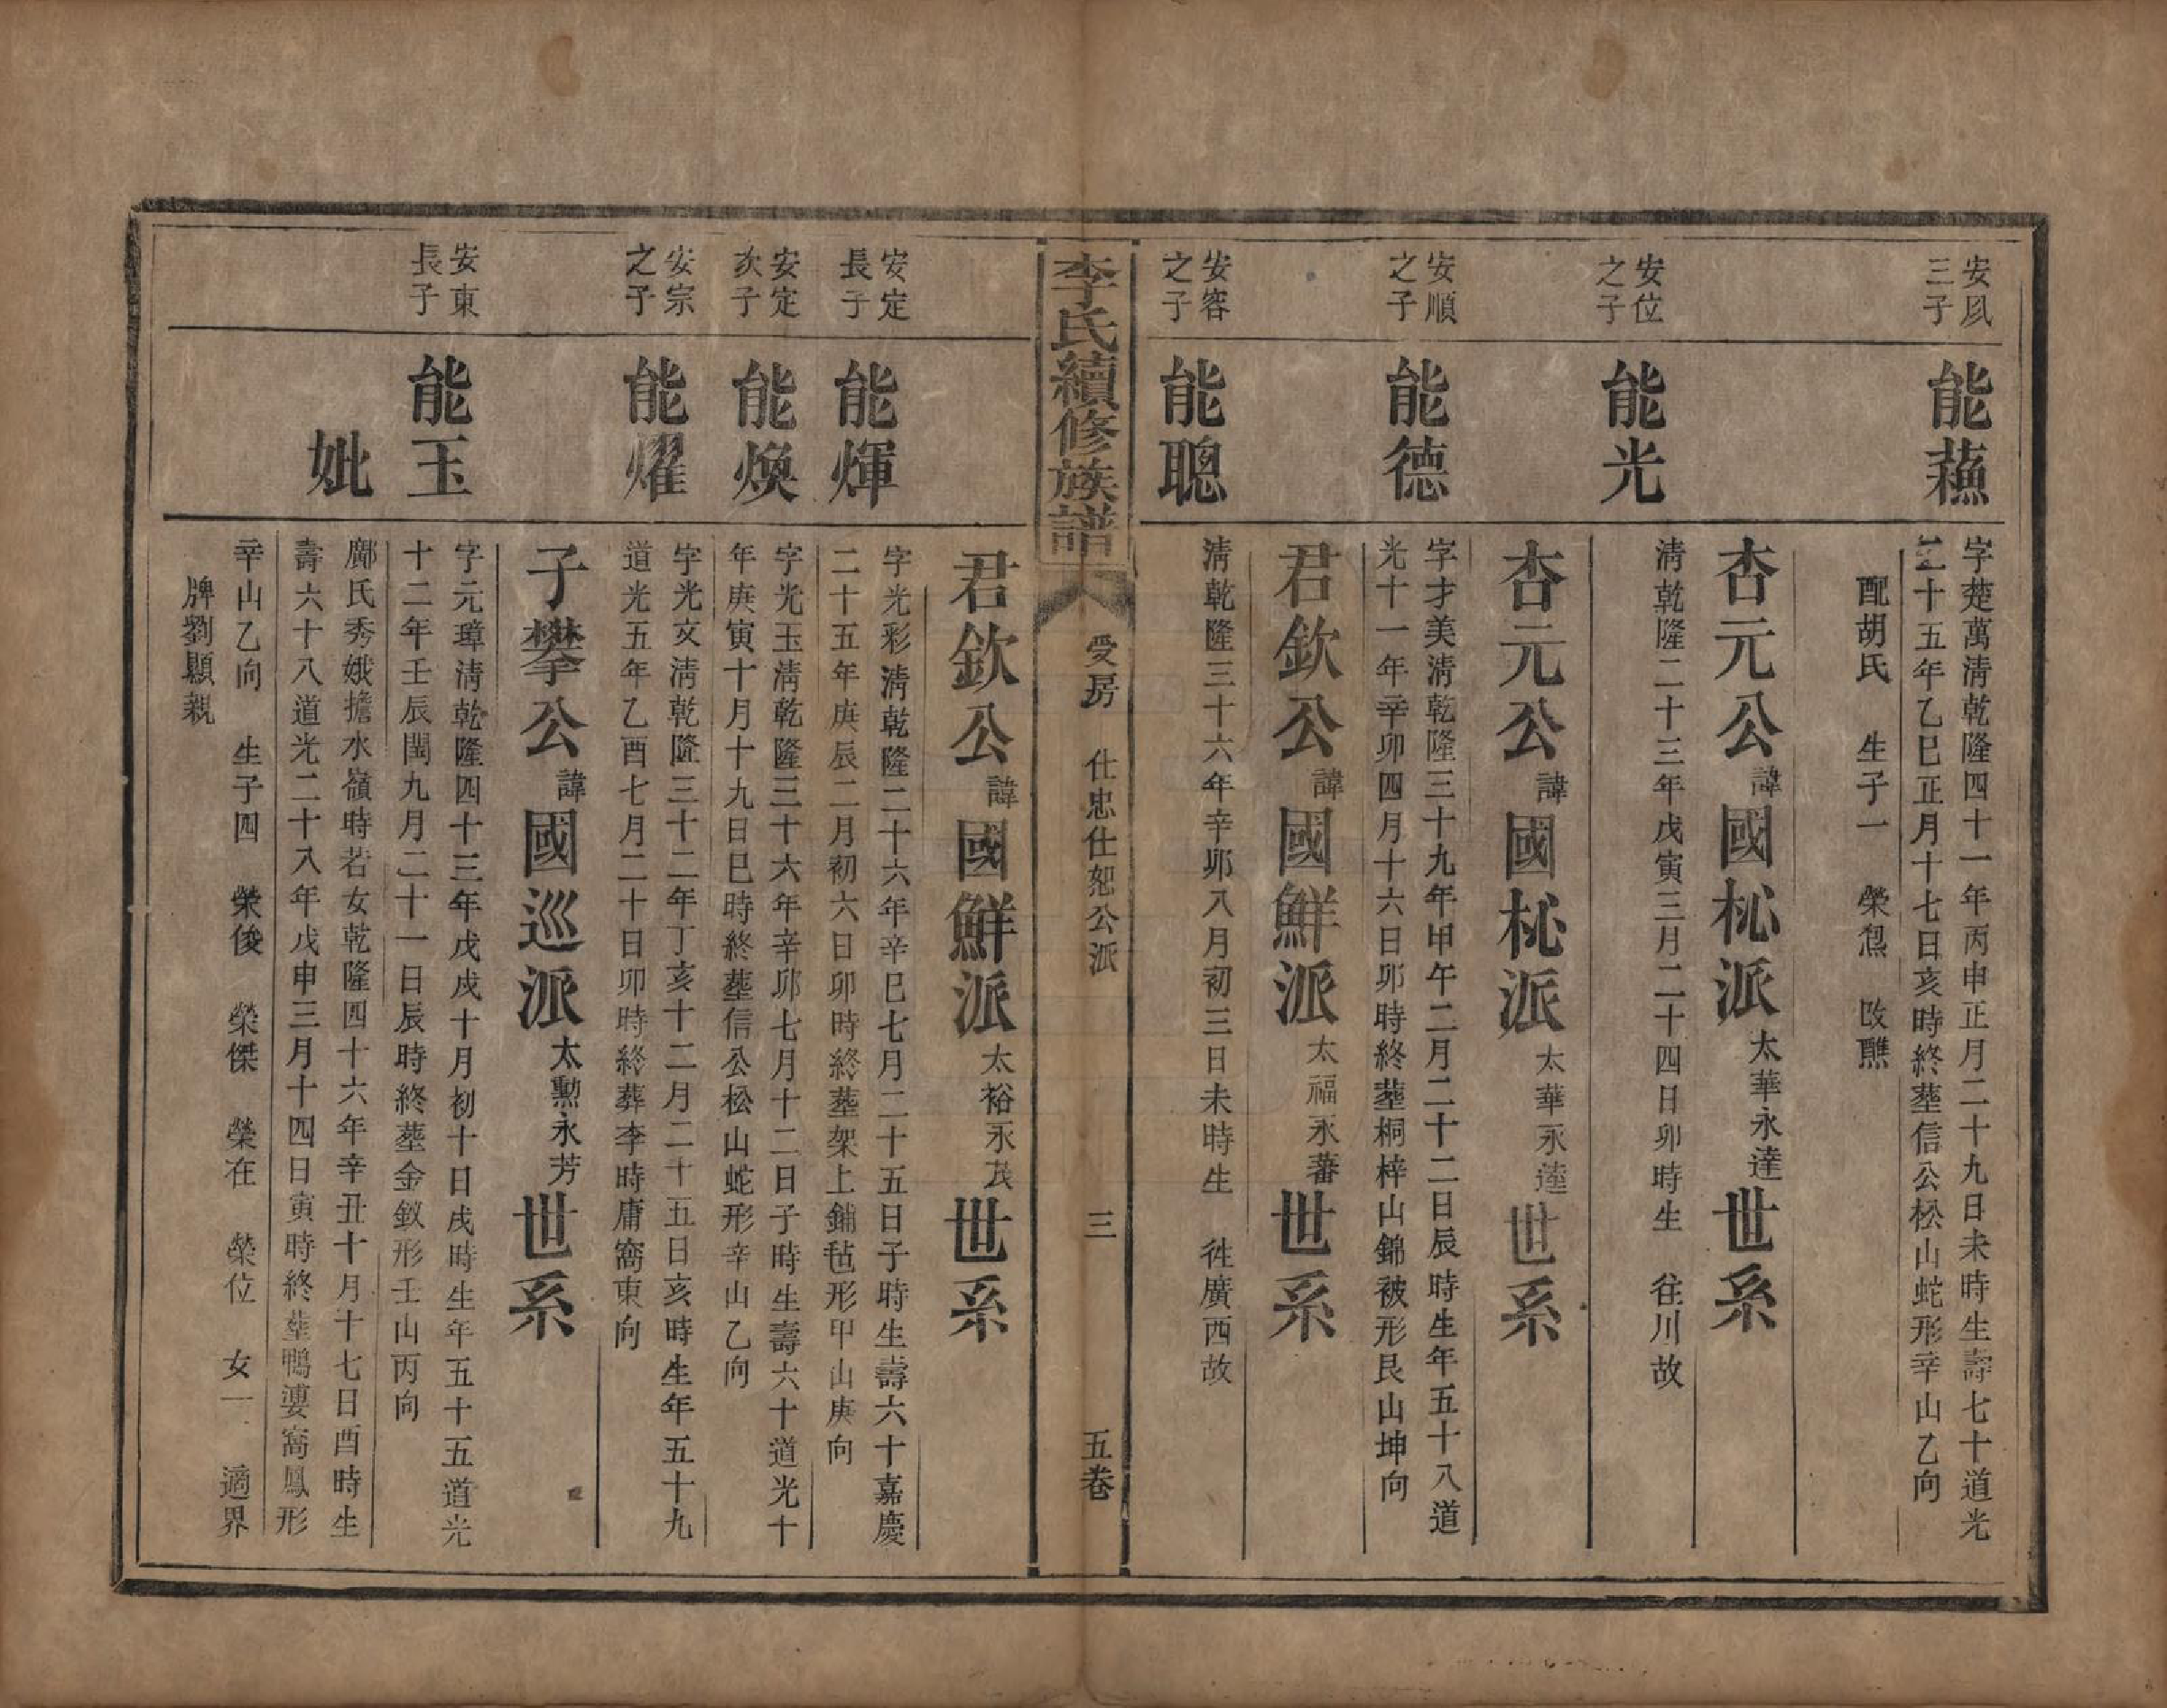 安凨
三子
能蘓
字楚萬淸乾隆四十一年丙申正月二十九日未時生壽七十道光
二十五年乙巳正月十七日亥時終塟信公松山蛇形辛山乙向
配胡氏　生子一　榮㷛　改醮
杏元公諱國杺派太華永達世系
安位
之子
能光
淸乾隆二十三年戊寅三月二十四日卯時生　往川故
杏元公諱國杺派太華永達世系
安順
之子
能德
字才美淸乾隆三十九年甲午二月二十二日辰時生年五十八道
光十一年辛卯四月十六日卯時終塟桐梓山錦被形艮山坤向
君欽公諱國鮮派太福永蕃世系
安容
之子
能聰
淸乾隆三十六年辛卯八月初三日未時生　徃廣西故
李氏續修族譜
受房　仕忠仕恕公派
三
五卷
君欽公諱國鮮派太裕永茂世系
安定
長子
能煇
字光彩淸乾隆二十六年辛巳七月二十五日子時生壽六十嘉慶
二十五年庚辰二月初六日卯時終塟架上鋪毡形甲山庚向
安定
次子
能煥
字光玉淸乾隆三十六年辛卯七月十二日子時生壽六十道光十
年庚寅十月十九日巳時終塟信公松山蛇形辛山乙向
安宗
之子
能燿
字光文淸乾隆三十二年丁亥十二月二十五日亥時生年五十九
道光五年乙酉七月二十日卯時終葬李時庸窩東向
子攀公諱國巡派太勲永芳世系
安東
長子
能玉
字元璋淸乾隆四十三年戊戌十月初十日戌時生年五十五道光
十二年壬辰閏九月二十一日辰時終塟金釵形壬山丙向
妣
鄺氏秀娥擔水嶺時若女乾隆四十六年辛丑十月十七日酉時生
壽六十八道光二十八年戊申三月十四日寅時終塟鴨婆窩鳳形
辛山乙向　生子四　榮俊　榮傑　榮在　榮位　女一　適界
牌劉顯親